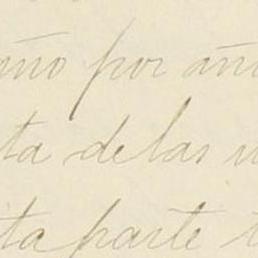 año por añ
ta de las
ta parte